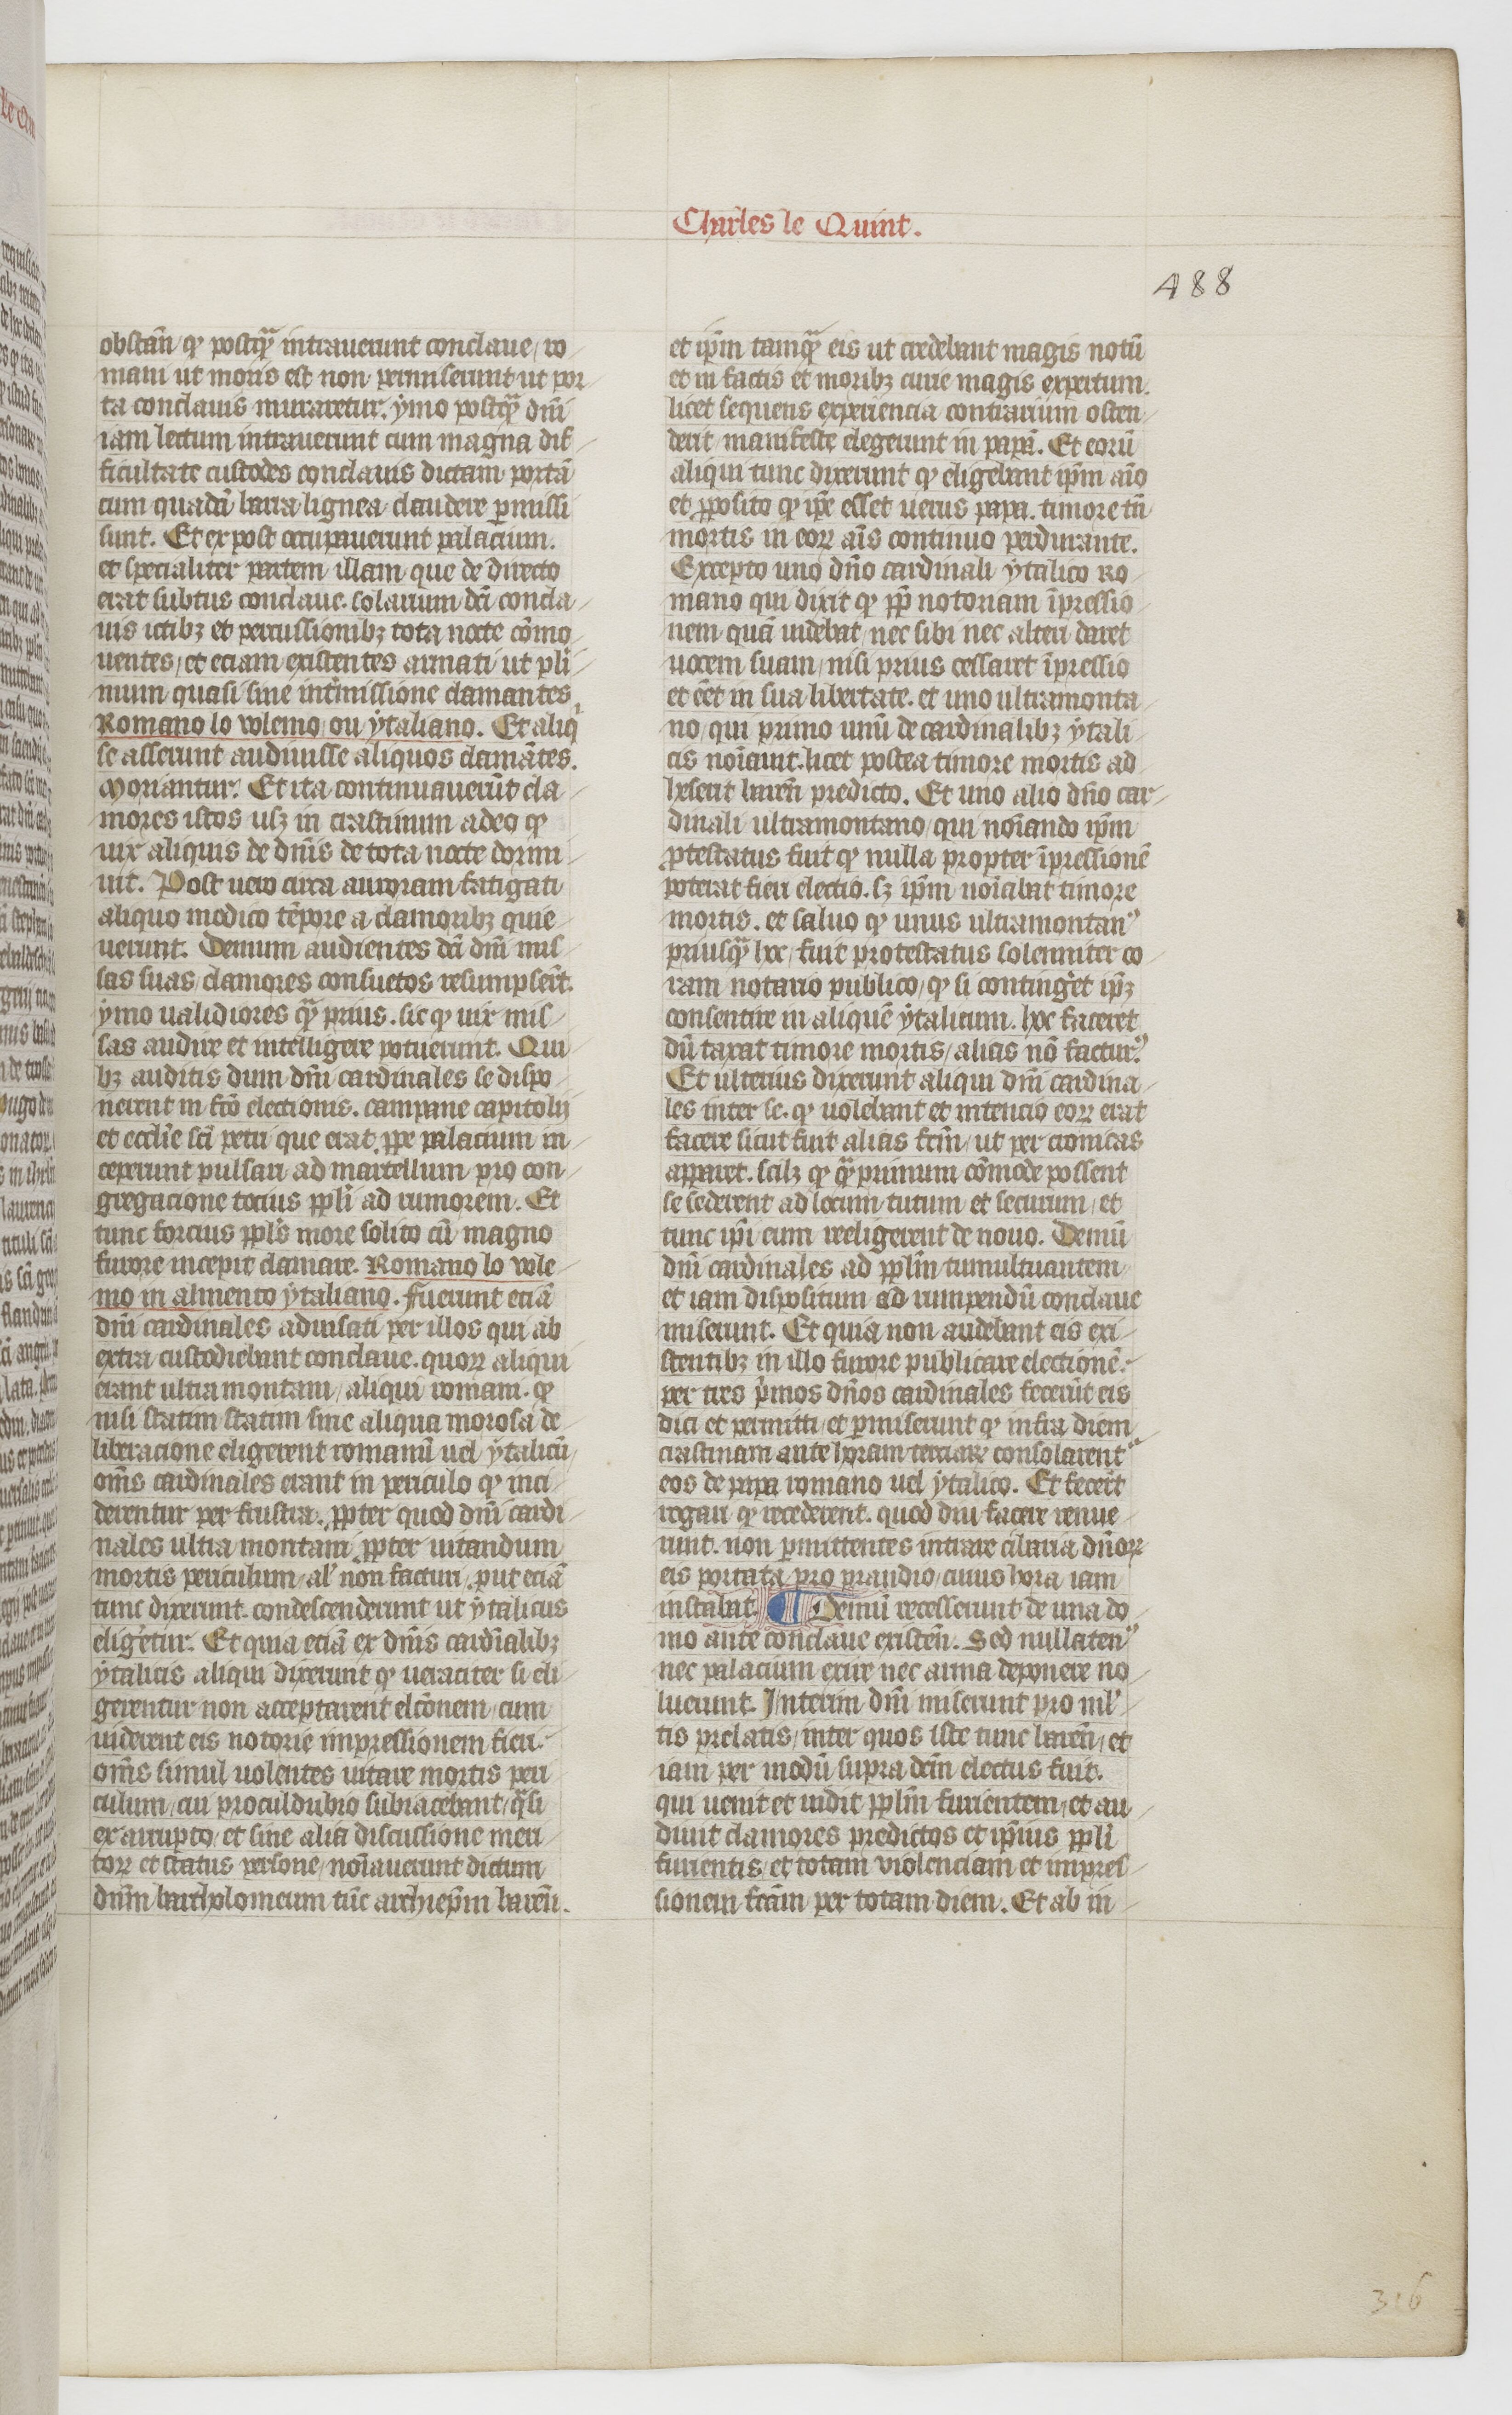 Charles le Quint.
488
obstan̄ / qͥ postqᷓ intrauerunt conclaue / ro
mani ut moris est non permiserunt ut por
ta conclauis muraretur. ẏmo postqᷓ dn̄i
iam lectum intrauerunt cum magna dif
ficultate custodes conclauis dictam portā
cum quadā barra lignea claudere ꝑmissi
sunt. Et ex post occupauerunt palacium.
et specialiter partem illam que de directo
erat subtus conclaue. solarium dc̄i concla
uis ictibꝫ et percussionibꝫ tota nocte cōmo
uentes / et eciam existentes armati ut pli
mum quasi sine int̄missione clamantes
Romano lo volemo / ou ẏtaliano. Et aliq̄
se asserunt audiuisse aliquos clamātes.
Moriantur. Et ita continuauerūt cla
mores istos usqꝫ in crastinum adeo qͥ
uix aliquis de dn̄is de tota nocte dormi
uit. Post uero circa auroram fatigati
aliquo modico tēpore a clamoribꝫ quie
uerunt. Demum audientes dc̄i dn̄i mis
sas suas / clamores consuetos resumpser̄t.
ẏmo ualidiores qᷓ prius. sic qͥ uix mis
sas audire et intelligere potuerunt. Qui
bꝫ auditis dum dn̄i cardinales se dispo
nerent in fc̄o electionis. campane capitolij
et eccl̄ie sc̄i petri que erat ꝓpe palacium in
ceperunt pulsari ad martellum pro con
gregacione tocius ppl̄i ad rumorem. Et
tunc forcius ppl̄s more solito cū magno
furore incepit clamare. Romano lo vole
mo in almenco ẏtaliano. Fuerunt eciā
dn̄i cardinales aduisati per illos qui ab
extra custodiebant conclaue. quoꝝ aliqui
erant ultra montani / aliqui romani. qͥ
nisi statim statim sine aliqua morosa de
liberacione eligerent romanū uel ẏtalicū
om̄s cardinales erant in periculo qͥ inci
derentur per frustra. ꝓpter quod dn̄i cardi
nales ultra montani ꝓpter uitandum
mortis periculum / al̓ non facturi / ꝓut eciā
tunc dixerunt. condescenderunt ut ẏtalicus
elig̓etur. Et quia eciā ex dn̄is cardīalibꝫ
ẏtalicis aliqui dixerunt qͥ ueraciter si eli
gerentur non acceptarent elc̄onem / cum
uiderent eis notorie impressionem fieri.
om̄s simul uolentes uitare mortis peri
culum / cui proculdubio subiacebant / qᷓsi
ex arrupto / et sine alia discussione meri
toꝝ et status persone / noīauerunt dictum
dn̄m bartholomeum tūc archiep̄m baren̄.
et ip̄m tamqᷓ eis ut credebant magis notū
et in factis et moribꝫ curie magis expertum.
licet sequens experiencia contrarium osten
derit / manifeste elegerunt in papā. Et eorū
aliqui tunc dixerunt qͥ eligebant ip̄m aīo
et ꝓposito qͥ ip̄e esset uerus papa. timore tn̄
mortis in eoꝝ aīs continuo perdurante.
Excepto uno dn̄o cardinali ẏtalico Ro
mano qui dixit qͥ ꝓp̄ notoriam īpressio
nem quā uidebat / nec sibi nec alteri daret
uocem suam / nisi prius cessaret īpressio
et eēt in sua libertate. et uno ultramonta
no / qui primo unū de cardinalibꝫ ẏtali
cis noīauit. licet postea timore mortis ad
heserit baren̄ predicto. Et uno alio dn̄o car
dinali ultramontano / qui noīando ip̄m
ꝓtestatus fuit qͥ nulla propter īpressionē
poterat fieri electio. sꝫ ip̄m noīabat timore
mortis. et saluo qͥ unus ultramontan᷒
priusqᷓ hoc / fuit protestatus solenniter co
ram notario publico / qͥ si conting̓et ip̄ꝫ
consentire in aliquē ẏtalicum. hoc faceret
dū taxat timore mortis / alias nō factur᷒.
Et ulterius dixerunt aliqui dn̄i cardina
les inter se. qͥ uolebant et intencio eoꝝ erat
facere sicut fuit alias fc̄m / ut per cronicas
apparet. scilꝫ qͥ qᷓ primum cōmode possent
se sederent ad locum tutum et securum / et
tunc ip̄i eum reeligerent de nouo. Demū
dn̄i cardinales ad ppl̄m tumultuantem
et iam dispositum ad rumpendū conclaue
miserunt. Et quia non audebant eis exi
stentibꝫ in illo furore publicare electionē.
per tres p̓mos dn̄os cardinales fecerūt eis
dici et permitti / et ꝓmiserunt qͥ infra diem
crastinam ante horam terciarꝫ consolarent᷑
eos de papa romano uel ẏtalico. Et fecer̄t
rogari qͥ recederent. quod diu facere renue
runt. non ꝑmittentes intrare cibaria dn̄oꝝ
eis portata pro prandio / cuius hora iam
instabat. ¶ Demū recesserunt de una do
mo ante conclaue existen̄. Sed nullaten᷒
nec palacium exire nec arma deponere no
luerunt. Interim dn̄i miserunt pro mĺ
tis prelatis / inter quos iste tunc baren̄ / et
iam per modū supra dc̄m electus fuit.
qui uenit et uidit ppl̄m furientem / et au
diuit clamores predictos et ip̄ius ppl̄i
furientis / et totam violenciam et impres
sionem fc̄am per totam diem. Et ab in
316